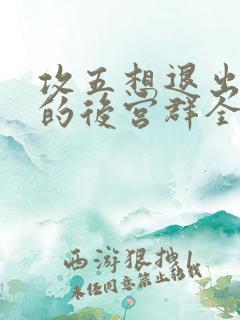 攻五想退出
的後宮群全
西游狠拽
未经同意禁止转载